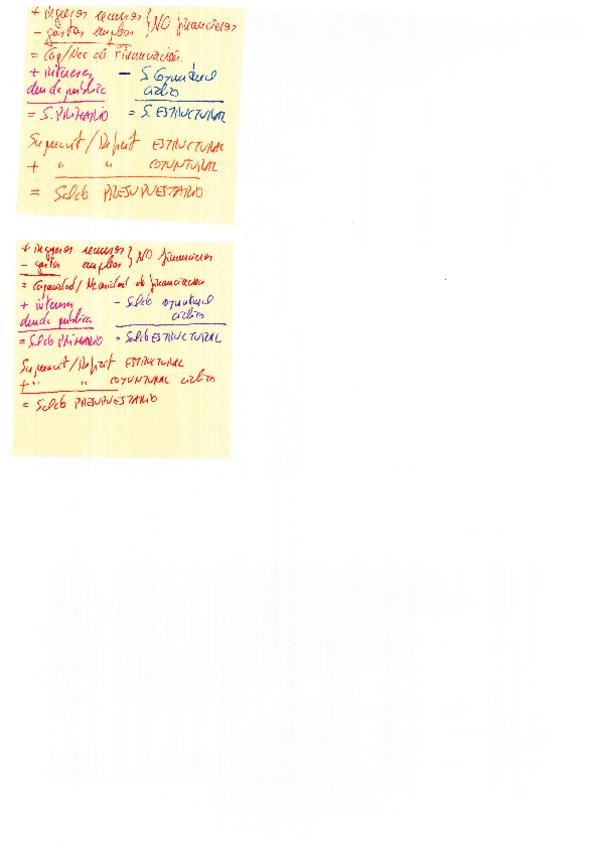 + ingresos recursos } NO financieros
- gastos empleos
= Cap/Nec de Financiación
+ intereses
deuda pública
= S. PRIMARIO
- S. Coyuntural
cíclico
= S. ESTRUCTURAL
Superavit/Deficit ESTRUCTURAL
+ " " COYUNTURAL
= Saldo PRESUPUESTARIO
+ ingresos recursos } NO financieros
- gastos empleos
= Capacidad/Necesidad de financiación
+ intereses
deuda pública
= Saldo PRIMARIO
- Saldo coyuntural
cíclico
= Saldo ESTRUCTURAL
Superavit/Deficit ESTRUCTURAL
+ " " COYUNTURAL cíclico
= Saldo PRESUPUESTARIO